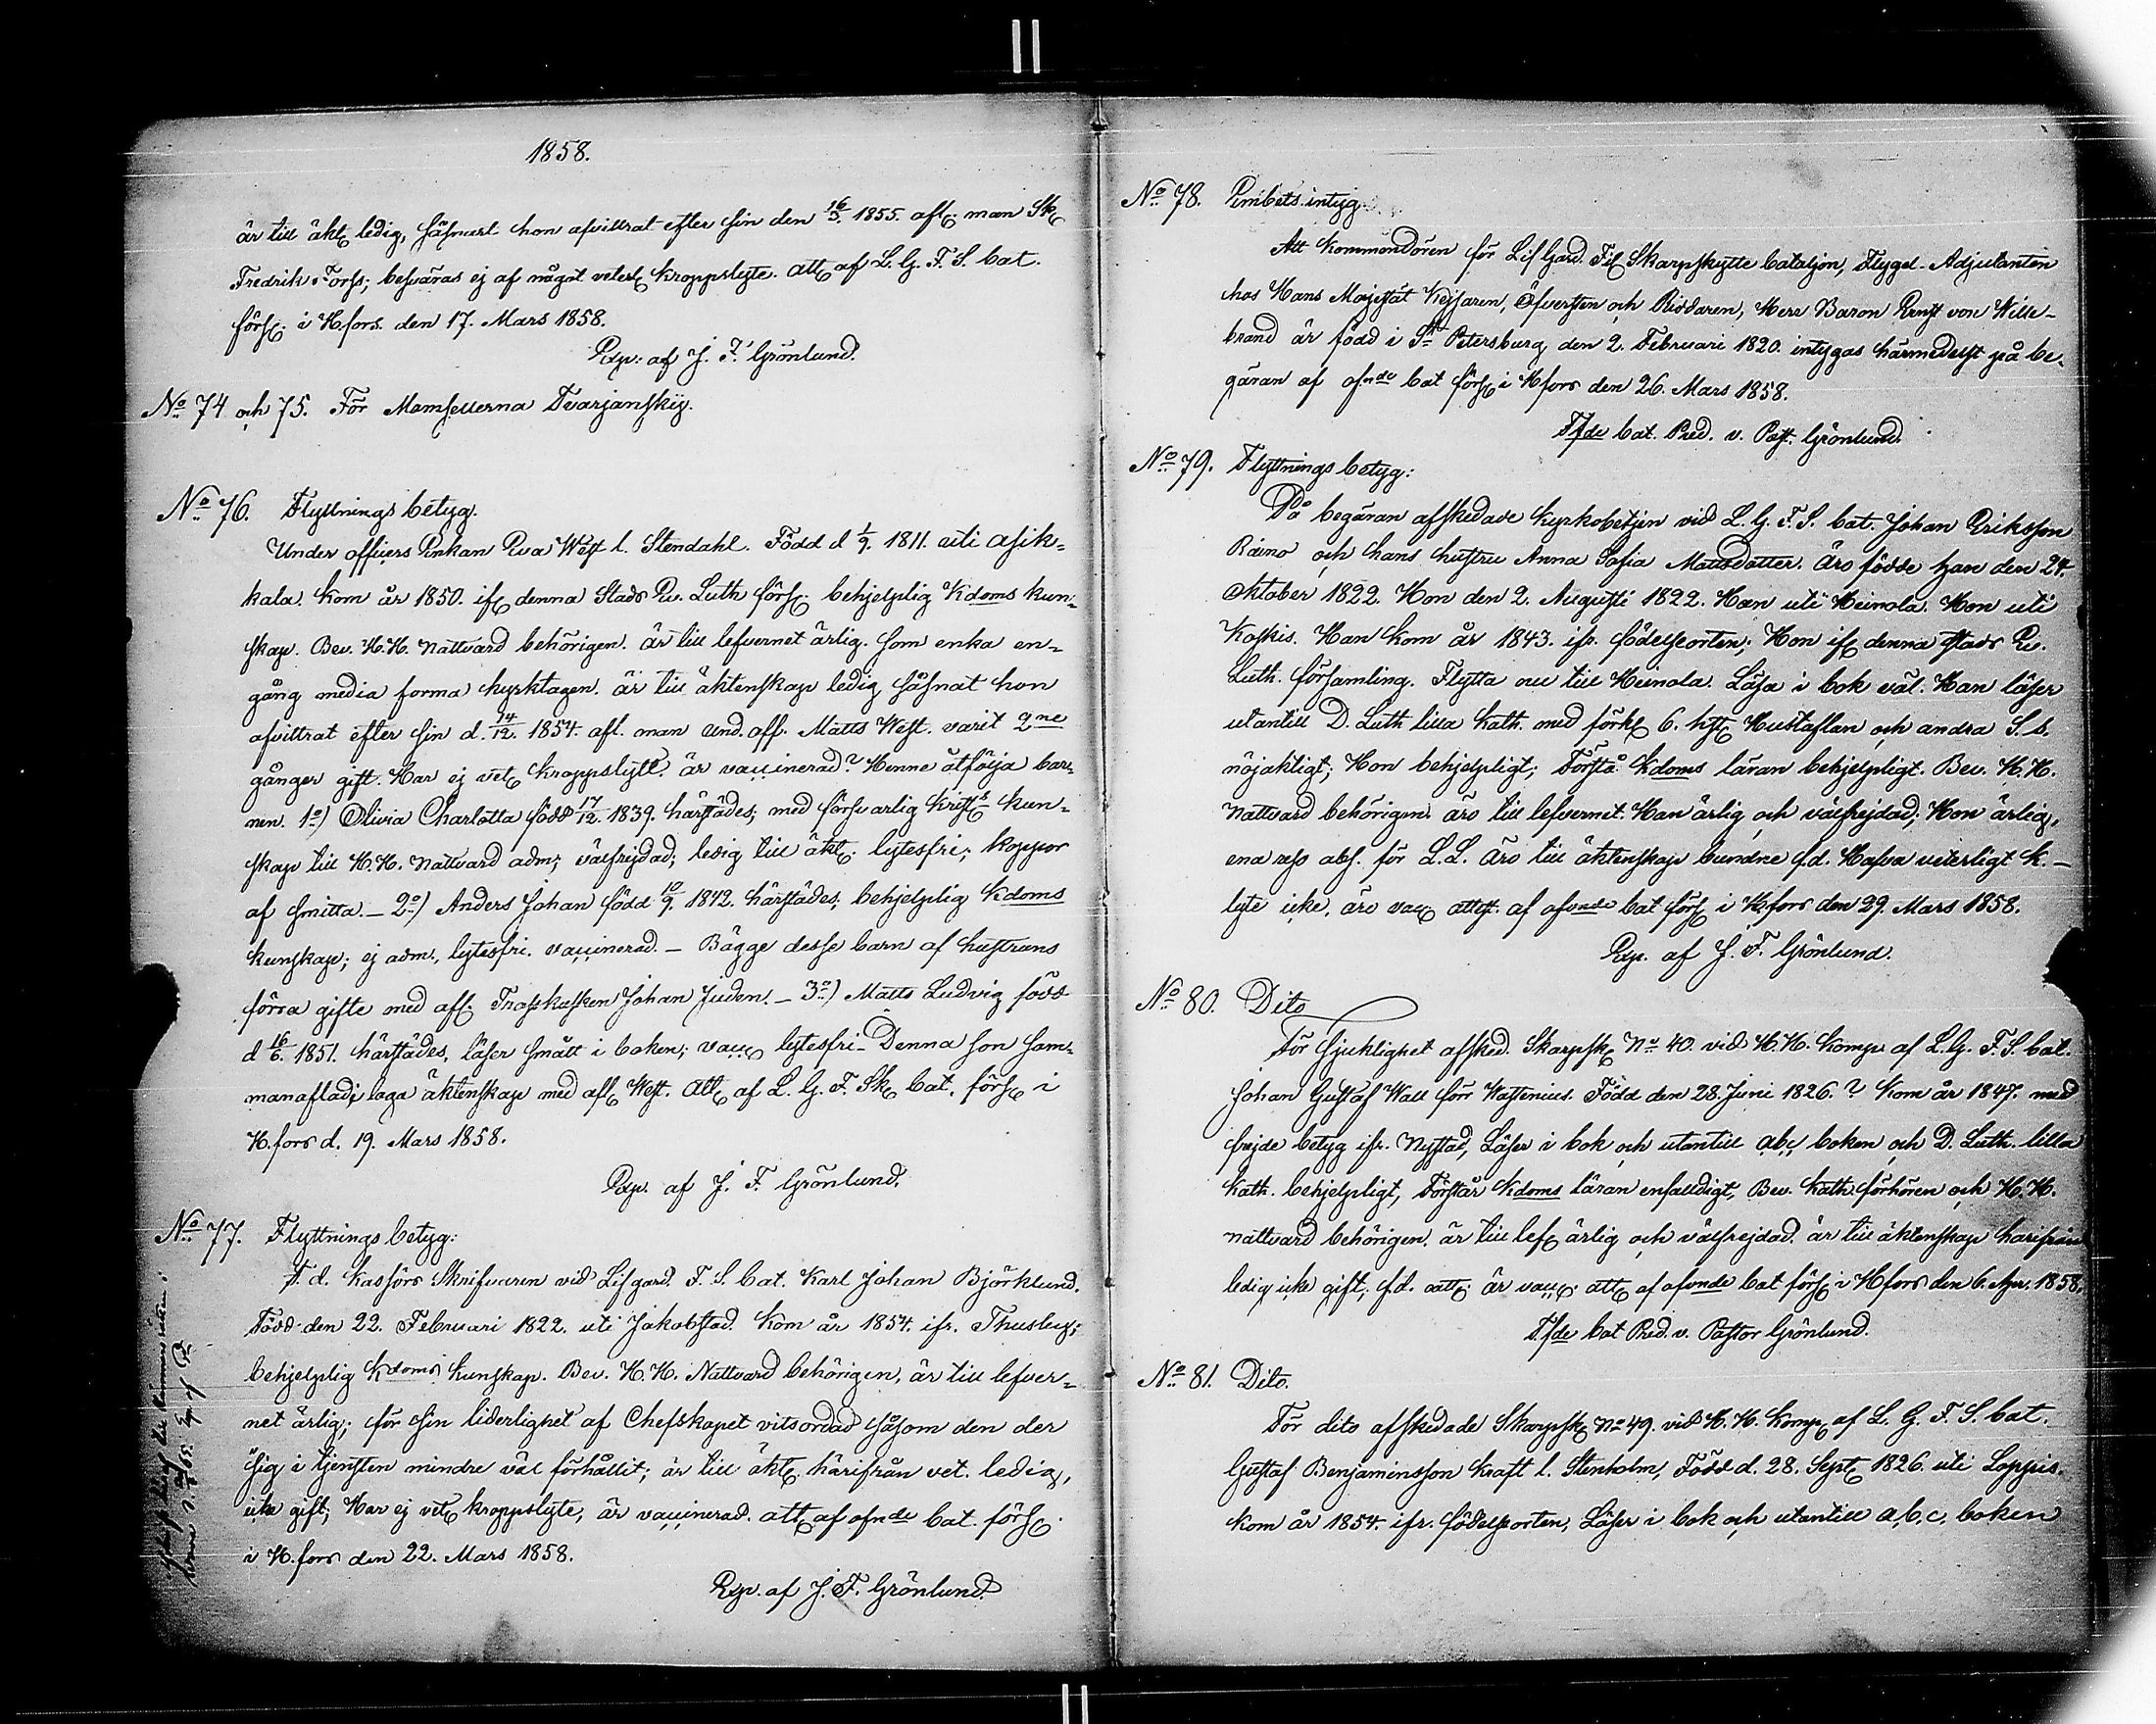 1858.
är till äkt. ledig, såsnart hon afvittrat efter sin den 16/5. 1855. afl. man Sk.
Fredrik Forss; besväras ej af något veterl. kroppslyte. att. af L. G. F. S. bat.
förs. i H.fors. den 17. Mars 1858.
Exp. af J. F. Grönlund.
No 74 och 75. För Mamsellerna Tvarjanskij.
No 76. Flyttnings betyg.
Under officers Enkan Eva West l. Stendahl. Född d 1/9. 1811. uti Asik-
kala. Kom år 1850. ifr. denna Stads Ev. Luth förs. behjelplig Kdoms kun-
skap. Bev. H.H. Nattvard behörigen. är till lefvernet ärlig. Som enka en-
gång media forma kyrktagen. är till äktenskap ledig såsnat hon
afvittrat efter sin d. 14/12. 1854. afl. man Und. off. Matts West. varit 2ne
gånger gift. Har ej vet. kroppslyte. är vaccinerad? Henne åtfölja bar-
nen. 1o) Olivia Charlotta född 17/12. 1839. härstädes; med försvarlig kristl. kun-
skap till H.H. Nattvard adm; välfrejdad; ledig till äkt. lytesfri; koppor
af smitta. – 2o) Anders Johan född 10/9. 1842. härstädes, behjelplig Kdoms
kunskap; ej adm., lytesfri. vaccinerad. – Bägge desse barn af hustruns
förra gifte med afl. Trosskusken Johan Juden. – 3o) Matts Ludvig född
d 16/6. 1851. härstädes, läser smått i boken; vacc. lytesfri – Denna son sam-
manaflad i laga äktenskap med afl. West. Att. af L. G. F. Sk. bat. förs. i
H.fors d. 19. Mars 1858.
Exp. af J. F. Grönlund.
No 77. Flyttnings betyg:
F. d. Kassörs Skrifvaren vid Lifgard. F. S. bat. Karl Johan Björklund.
Född den 22. Februari 1822. uti Jakobstad. Kom år 1854. ifr. Thusby;
behjelplig Kdoms kunskap. Bev. H. H. Nattvard behörigen, är till lefver-
net ärlig; för sin liderlighet af Chefskapet vitsordad såsom den der
sig i tjensten mindre väl förhållit; är till äkt. härifrån vet. ledig,
icke gift; Har ej vet. kroppslyte, är vaccinerad. att. af ofnde bat. förs.
i H.fors den 22. Mars 1858.
Exp. af J. F. Grönlund.
No 78. Embets intyg.
Att Kommendören för Lif Gard. Fi. Skarpskytte bataljon, Flygel-Adjutanten
hos Hans Majestät Kejsaren, Öfversten och Riddaren, Herr Baron Ernst von Wille-
brand är född i St Petersburg den 2. Februari 1820. intygas härmedelst på be-
gäran af ofnde bat förs. i H.fors den 26. Mars 1858.
Tfde bat. Pred. v. Past. Grönlund.
No 79. Flyttnings betyg:
På begäran afskedade kyrkobetjen vid L. G. F. S. bat. Johan Eriksson
Räino och hans hustru Anna Sofia Mattsdotter. äro födde han den 24.
Oktober 1822. Hon den 2. Augusti 1822. Han uti Heinola. Hon uti
Koskis. Han kom år 1843. ifr. födelseorten; Hon ifr. denna stads Ev.
Luth. församling. Flytta nu till Heinola. Läsa i bok väl. Han läser
utantill D. Luth lilla Kath. med förkl. 6. hst. Hustaflan och andra S. s.
nöjaktigt; Hon behjelpligt; Förstå Kdoms läran behjelpligt. Bev. H. H.
Nattvard behörigen äro till lefvernet. Han ärlig och välfrejdad; Hon ärlig,
ena res abs. för L. L. Äro till äktenskap bundne s.d. Hafva veterligt k. –
lyte icke, äro vacc. attest. af ofvnde bat förs. i H.fors den 29. Mars 1858.
Exp. af J. F. Grönlund.
No 80. Dito
För sjuklighet afsked. Skarpsk. No 40. vid H. H. Komp. af L. G. F. S. bat.
Johan Gustaf Wall förr Wassenius. Född den 28. Juni 1826.? Kom år 1847. med
frejde betyg ifr. Nystad, Läser i bok och utantill abc boken och D. Luth. lilla
Kath. behjelpligt, Förstår Kdoms läran enfalldigt, Bev. Kath. förhören och H. H.
Nattvard behörigen. är till lef. ärlig och välfrejdad. är till äktenskap härifrån
ledig icke gift; s.d. är vacc. att. af ofvnde bat förs. i H.fors den 6. Apr. 1858.
Tfde bat Pred. v. Pastor Grönlund.
No 81. Dito.
För dito afskedade Skarpsk. No 49. vid H. H. Komp. af L. G. F. S. bat.
Gustaf Benjaminsson Kraft l. Stenholm, Född d. 28. Sept. 1826. uti Loppis.
Kom år 1854. ifr. födelseorten, Läser i bok och utantill a, b, c, boken